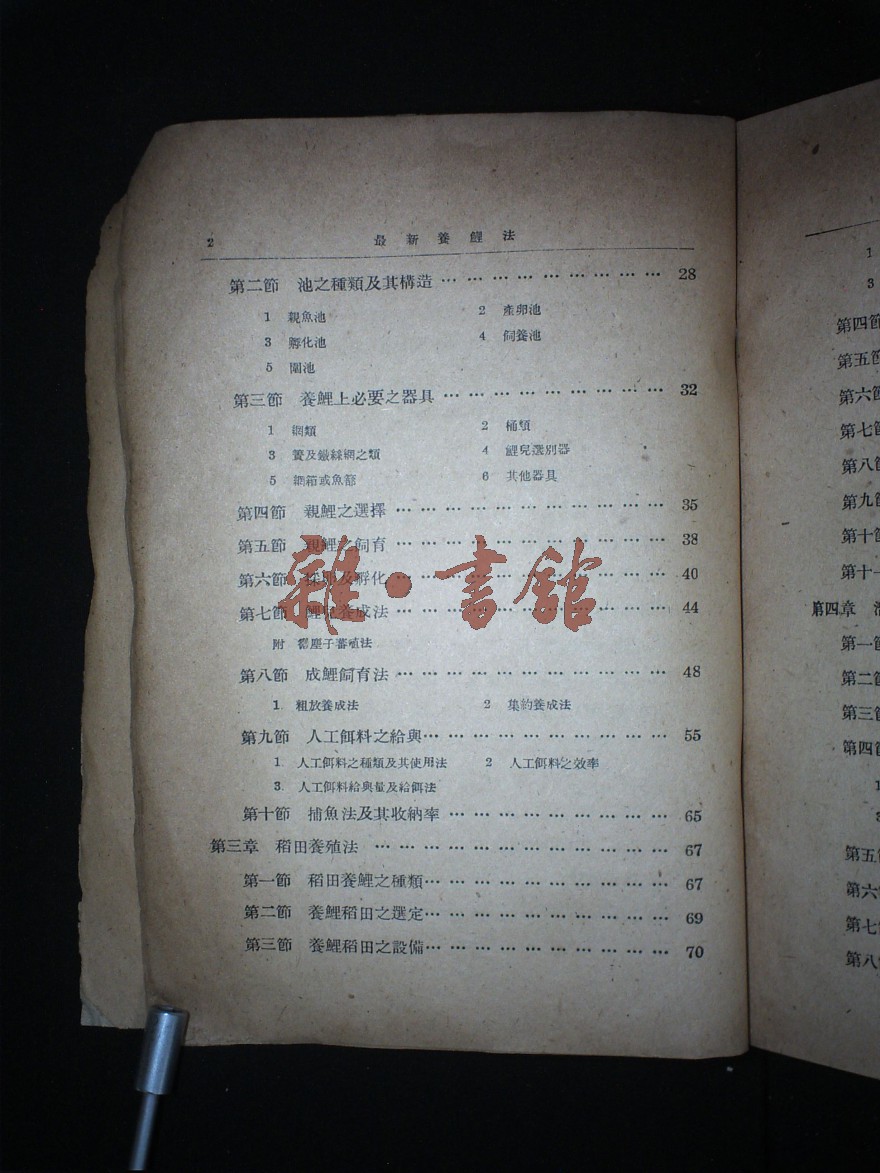 2 最新養鯉法
第二節 池之種類及其構造 … … … … … … … … … 28
1 親魚池 2 產卵池
3 孵化池 4 飼養池
5 圍池
第三節 養鯉上必要之器具 … … … … … … … … … 32
1 網類 2 桶類
3 簀及鐵絲網之類 4 鯉兒選別器
5 網箱或魚籠 6 其他器具
第四節 親鯉之選擇 … … … … … … … … … … … 35
第五節 親鯉之飼育 … … … … … … … … … … … 38
第六節 採卵及孵化 … … … … … … … … … … … 40
第七節 鯉兒養成法 … … … … … … … … … … … 44
附 塵子蕃殖法
第八節 成鯉飼育法 … … … … … … … … … … … 48
1. 粗放養成法 2 集約養成法
第九節 人工餌料之給與 … … … … … … … … … … 55
1. 人工餌料之種類及其使用法 2 人工餌料之效率
3. 人工餌料給與量及給餌法
第十節 捕魚法及其收納率 … … … … … … … … … 65
第三章 稻田養殖法 … … … … … … … … … … … … 67
第一節 稻田養鯉之種類 … … … … … … … … … … 67
第二節 養鯉稻田之選定 … … … … … … … … … … 69
第三節 養鯉稻田之設備 … … … … … … … … … … 70
雜·書館
1
3
第四節
第五節
第六節
第七節
第八節
第九節
第十節
第十一
第四章
第一節
第二節
第三節
第四節
1
3
第五節
第六節
第七節
第八